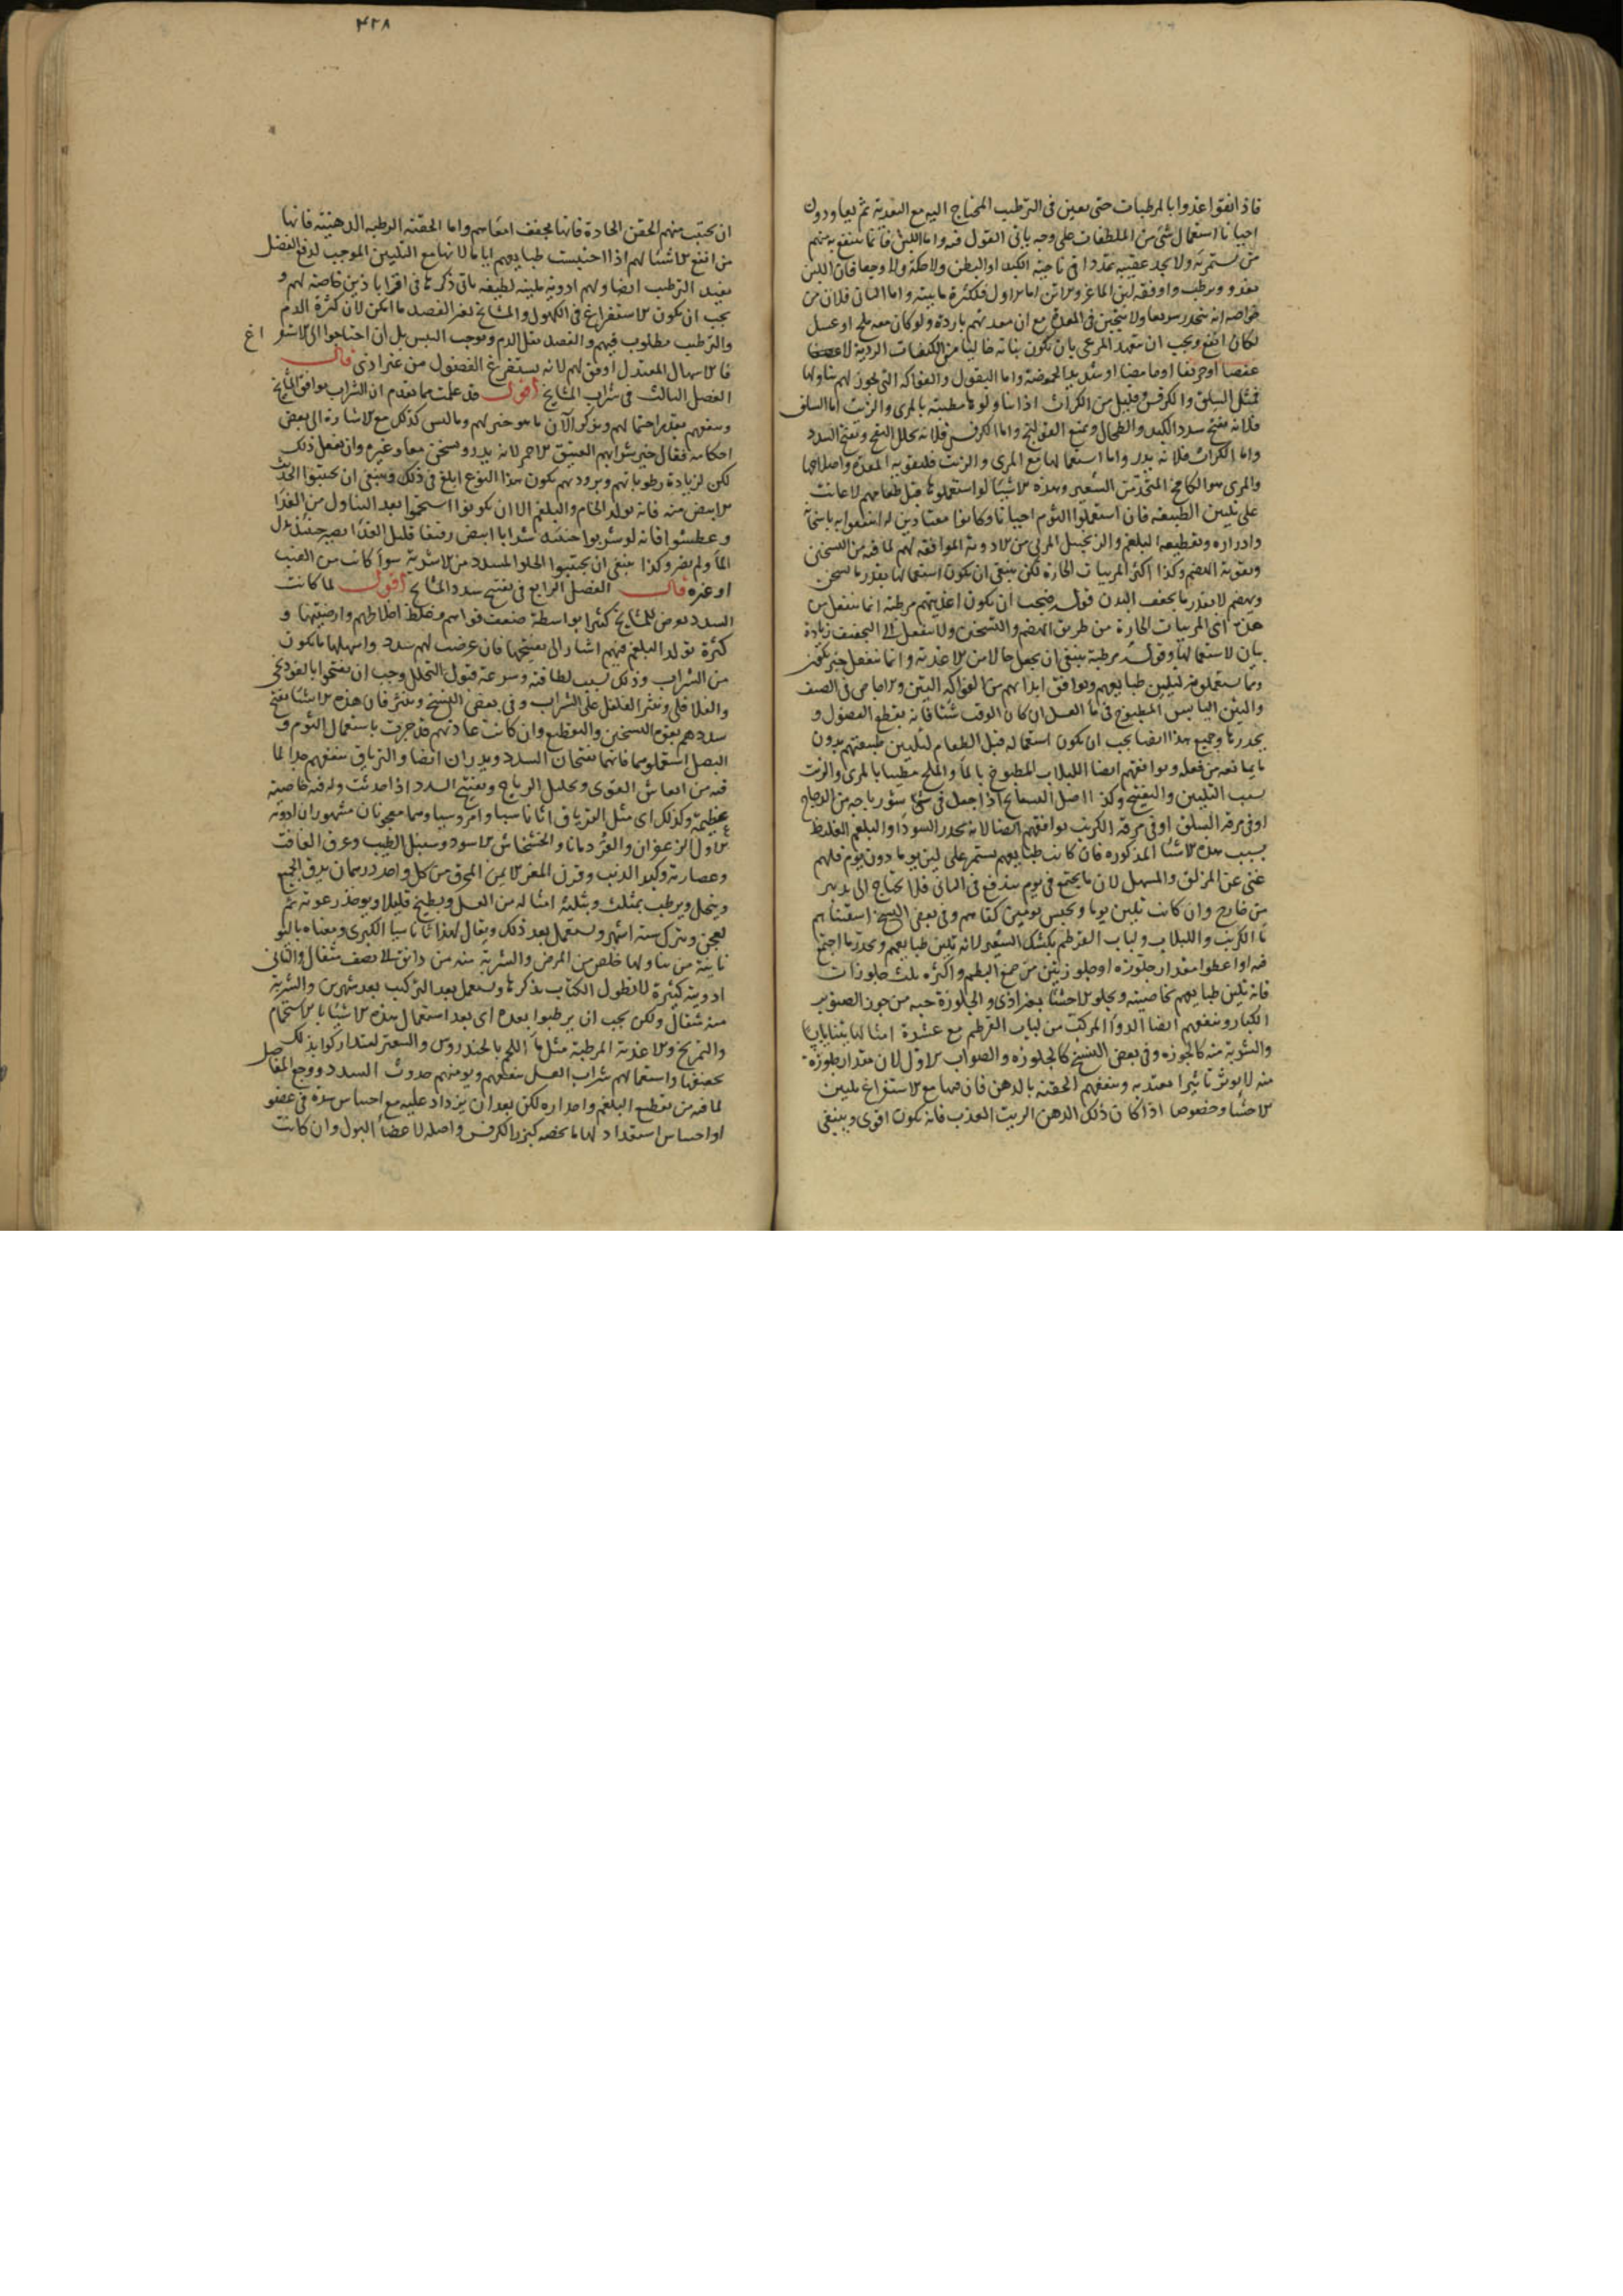 فاذا انفقوا غذوا بالمرطبات حتى يعين فى الترطيب المحتاج اليه مع التغذية ثم يعاودون
احيانا استعمال شئ من الملطفات على وجه ياتى القول فيه واما اللبن فانما ينتفع به منهم
من يستمريه ولا يجد عقيبه تمددا فى ناحية الكبد او البطن ولا حكة ولا وجعا فان اللبن
يغذو ويرطب واوفقه لبن الماعز والاتن اما الاول فلكثرة مائيته واما الثانى فلان من
خواصه انه ينحدر سريعا ولا يتجبن فى المعدة مع ان معدتهم باردة ولو كان معه ملح او عسل
لكان انفع ويجب ان يتعهد المرعى بان يكون نباته خاليا من الكيفيات الردية لا
عفصا او حريفا او حامضا او شديد الحموضة واما البقول والفواكه التى يجوز لهم تناولها
فمثل السلق والكرفس وقليل من الكراث اذا تناولوها مطيبة بالمرى والزيت اما السلق
فلانه يفتح سدد الكبد والطحال وينفع القولنج واما الكرفس فلانه يحلل النفخ ويفتح السدد
واما الكراث فلانه يدر واما استعمالها مع المرى والزيت فليقويه المعدة واصلاحها
والمرى هو الكامخ المتخذ من الشعير وهذه الاشياء لو استعملوها قبل طعامهم لاعانت
على تليين الطبيعة فان استعملوا الثوم احيانا وكانوا معتادين له انتفعوا به باسخانه
وادراره وتقطيعه البلغم والزنجبيل المربى من الادوية الموافقة لهم لما فيه من التسخين
وتقوية الهضم وكذا اكثر المربيات الحارة لكن ينبغى ان يكون استعمالها بقدر ما يسخن
ويهضم لا بقدر ما يجفف البدن قوله فيجب ان يكون اغذيتهم مرطبة انما ينفعل من
هذه اى المربيات الحارة من طريق الهضم والتسخين ولا ينفعل الى التجفيف زيادة
بيان لاستعمالها وقوله مرطبة ينبغى ان يجعل حالا من الاغذية وانما ينفعل خبر يكون
ومما يستعملونه لتليين طبايعهم ويوافق ابدانهم من الفواكه التين والاجاص فى الصيف
والتين اليابس المطبوخ فى ماء العسل ان كان الوقت شتاء فانه يقطع الفضول و
يحدرها وجميع هذا ايضا يجب ان يكون استعماله قبل الطعام لتليين طبيعتهم بدون
ما يمانعه من فعله ويوافقهم ايضا اللبلاب المطبوخ بالماء والملح مطيبا بالمرى والزيت
بسبب التليين والتفتيح وكذا اصل البسفايج اذا جعل فى شئ شورباجه من الدجاج
او فى مرقة السلق او فى مرقة الكرنب يوافقهم ايضا لانه يحدر السوداء والبلغم الغليظ
بسبب هذه الاشياء المذكورة فان كانت طبايعهم يستمر على لين يوما دون يوم فلهم
غنى عن المزلق والمسهل لان ما يجتمع فى يوم يندفع فى الثانى فلا يحتاج الى تدبير
من خارج وان كانت تلين يوما ويحبس يومين كفاهم وفى بعض النسخ استغنائهم
ماء الكرنب واللبلاب ولباب القرطم بكشك الشعير لانه يلين طبايعهم ويحدر ما اجتمع
فيه او اعطوا مقدار جلوزه او جلوزتين من صمغ البطم واكثره ثلث جلوزات
فانه يلين طبايعهم بخاصيته ويجلو الاحشاء بغير اذى والجلوزة حبه من جوز الصنوبر
الكبار وينفعهم ايضا الدواء المركب من لباب القرطم مع عشرة امثالها تينا يابسا
والشربة منه كالجوزه وفى بعض النسخ كالجلوزه والصواب الاول لان مقدار جلوزه
منه لا يوثر تاثيرا معتدبه وينفعهم الحقنة بالدهن فان فيها مع الاستفراغ تليين
الاحشاء وخصوصا اذا كان ذلك الدهن الزيت العذب فانه يكون اقوى وينبغى
۴۲۸
ان يجتنب منهم الحقن الحادة فانها تجفف امعاءهم واما الحقنة الرطبة الدهنية فانها
من انفع الاشياء لهم اذا احتبست طبايعهم اياما لانها مع التليين الموجب لدفع الفضل
يفيد الترطيب ايضا ولهم ادوية ملينة لطيفة ياتى ذكرها فى اقراباذين خاصة لهم و
يجب ان يكون الاستفراغ فى الكهول والمشايخ بغير الفصد ما امكن لان كثرة الدم
والترطيب مطلوب فيهم والفصد يقل الدم ويوجب اليبس بل ان احتاجوا الى الاستفراغ
فالاسهال المعتدل اوفق لهم لانه يستفرغ الفضول من غير اذى قال
الفصل الثالث فى شراب المشايخ اقول قد علمت مما تقدم ان الشراب يوافق المشايخ
وينفعهم بقدر احتمالهم ويذكر الآن ما هو خير لهم وما ليس كذلك مع الاشارة الى بعض
احكامه فقال خير شرابهم العتيق الاحمر لانه يدر ويسخن معا وغيره وان يفعل ذلك
لكن لزيادة رطوباتهم وبرودتهم يكون هذا النوع ابلغ فى ذلك وينبغى ان يجتنبوا الحديث
الابيض منه فانه يولد الخام والبلغم الا ان يكونوا استحموا بعد التناول من الغذاء
وعطشوا فانه لو شربوا حينئذ شرابا ابيض رقيقا قليل الغذاء يصير حينئذ بدل
الماء ولم يضر وكذا ينبغى ان يجتنبوا الحلو المسدد من الاشربة سواء كانت من العنب
او غيره قال الفصل الرابع فى تفتيح سدد المشايخ اقول لما كانت
السدد يعرض للمشايخ كثيرا بواسطة ضعف قواهم وغلظ اخلاطهم وارضيتها و
كثرة تولد البلغم فيهم اشار الى تفتيحها فان عرضت لهم سدد واسهلها ما يكون
من الشراب وذلك بسبب لطافته وسرعة قبول التحلل وجب ان يفتحوا بالفودنجى
والفلافلى ونثر الفلفل على الشراب وفى بعض النسخ وينثر فان هذه الاشياء تفتح
سددهم بقوة التسخين والتقطيع وان كانت عادتهم قد جرت باستعمال الثوم و
البصل استعملوهما فانهما يفتحان السدد ويدران ايضا والترياق ينفعهم جدا لما
فيه من انعاش القوى وتحليل الرياح وتفتيح السدد اذا حدثت وله فيه خاصية
عظيمة وكذلك اى مثل الترياق اثاناسيا وامروسيا وهما معجونان مشهوران ادوية
الاول الزعفران والقردمانا والخشخاش الاسود وسنبل الطيب وعرق الغافت
وعصارته وكبد الذئب وقرن المعز الايمن المحرق من كل واحد درهمان يدق الجميع
وينخل ويرطب بمثلث وبثلثة امثاله من العسل ويطبخ قليلا ويوخذ رغوته ثم
يعجن ويترك ستة اشهر ويستعمل بعد ذلك ويقال لهذا اثاناسيا الكبرى ومعناه باليو
نانية من تناولها خلص من المرض والشربة منه من دانق الى نصف مثقال والثانى
ادويته كثيرة لا نطول الكتاب بذكرها ويستعمل بعد التركيب بعد شهرين والشربة
منه مثقال ولكن يجب ان يرطبوا بعده اى بعد استعمال هذه الاشياء بالاستحمام
والتمريخ والاغذية المرطبة مثل ماء اللحم بالخندروس والشعير ليتداركوا بذلك
تجفيفها واستعمالهم شراب العسل ينفعهم ويومنهم حدوث السدد ووجع المفاصل
لما فيه من تقطيع البلغم واحداره لكن بعد ان يزداد عليه مع احساس سدة فى عضو
او احساس استعداد لها ما يخصه كبزر الكرفس واصله لاعضاء البول وان كانت